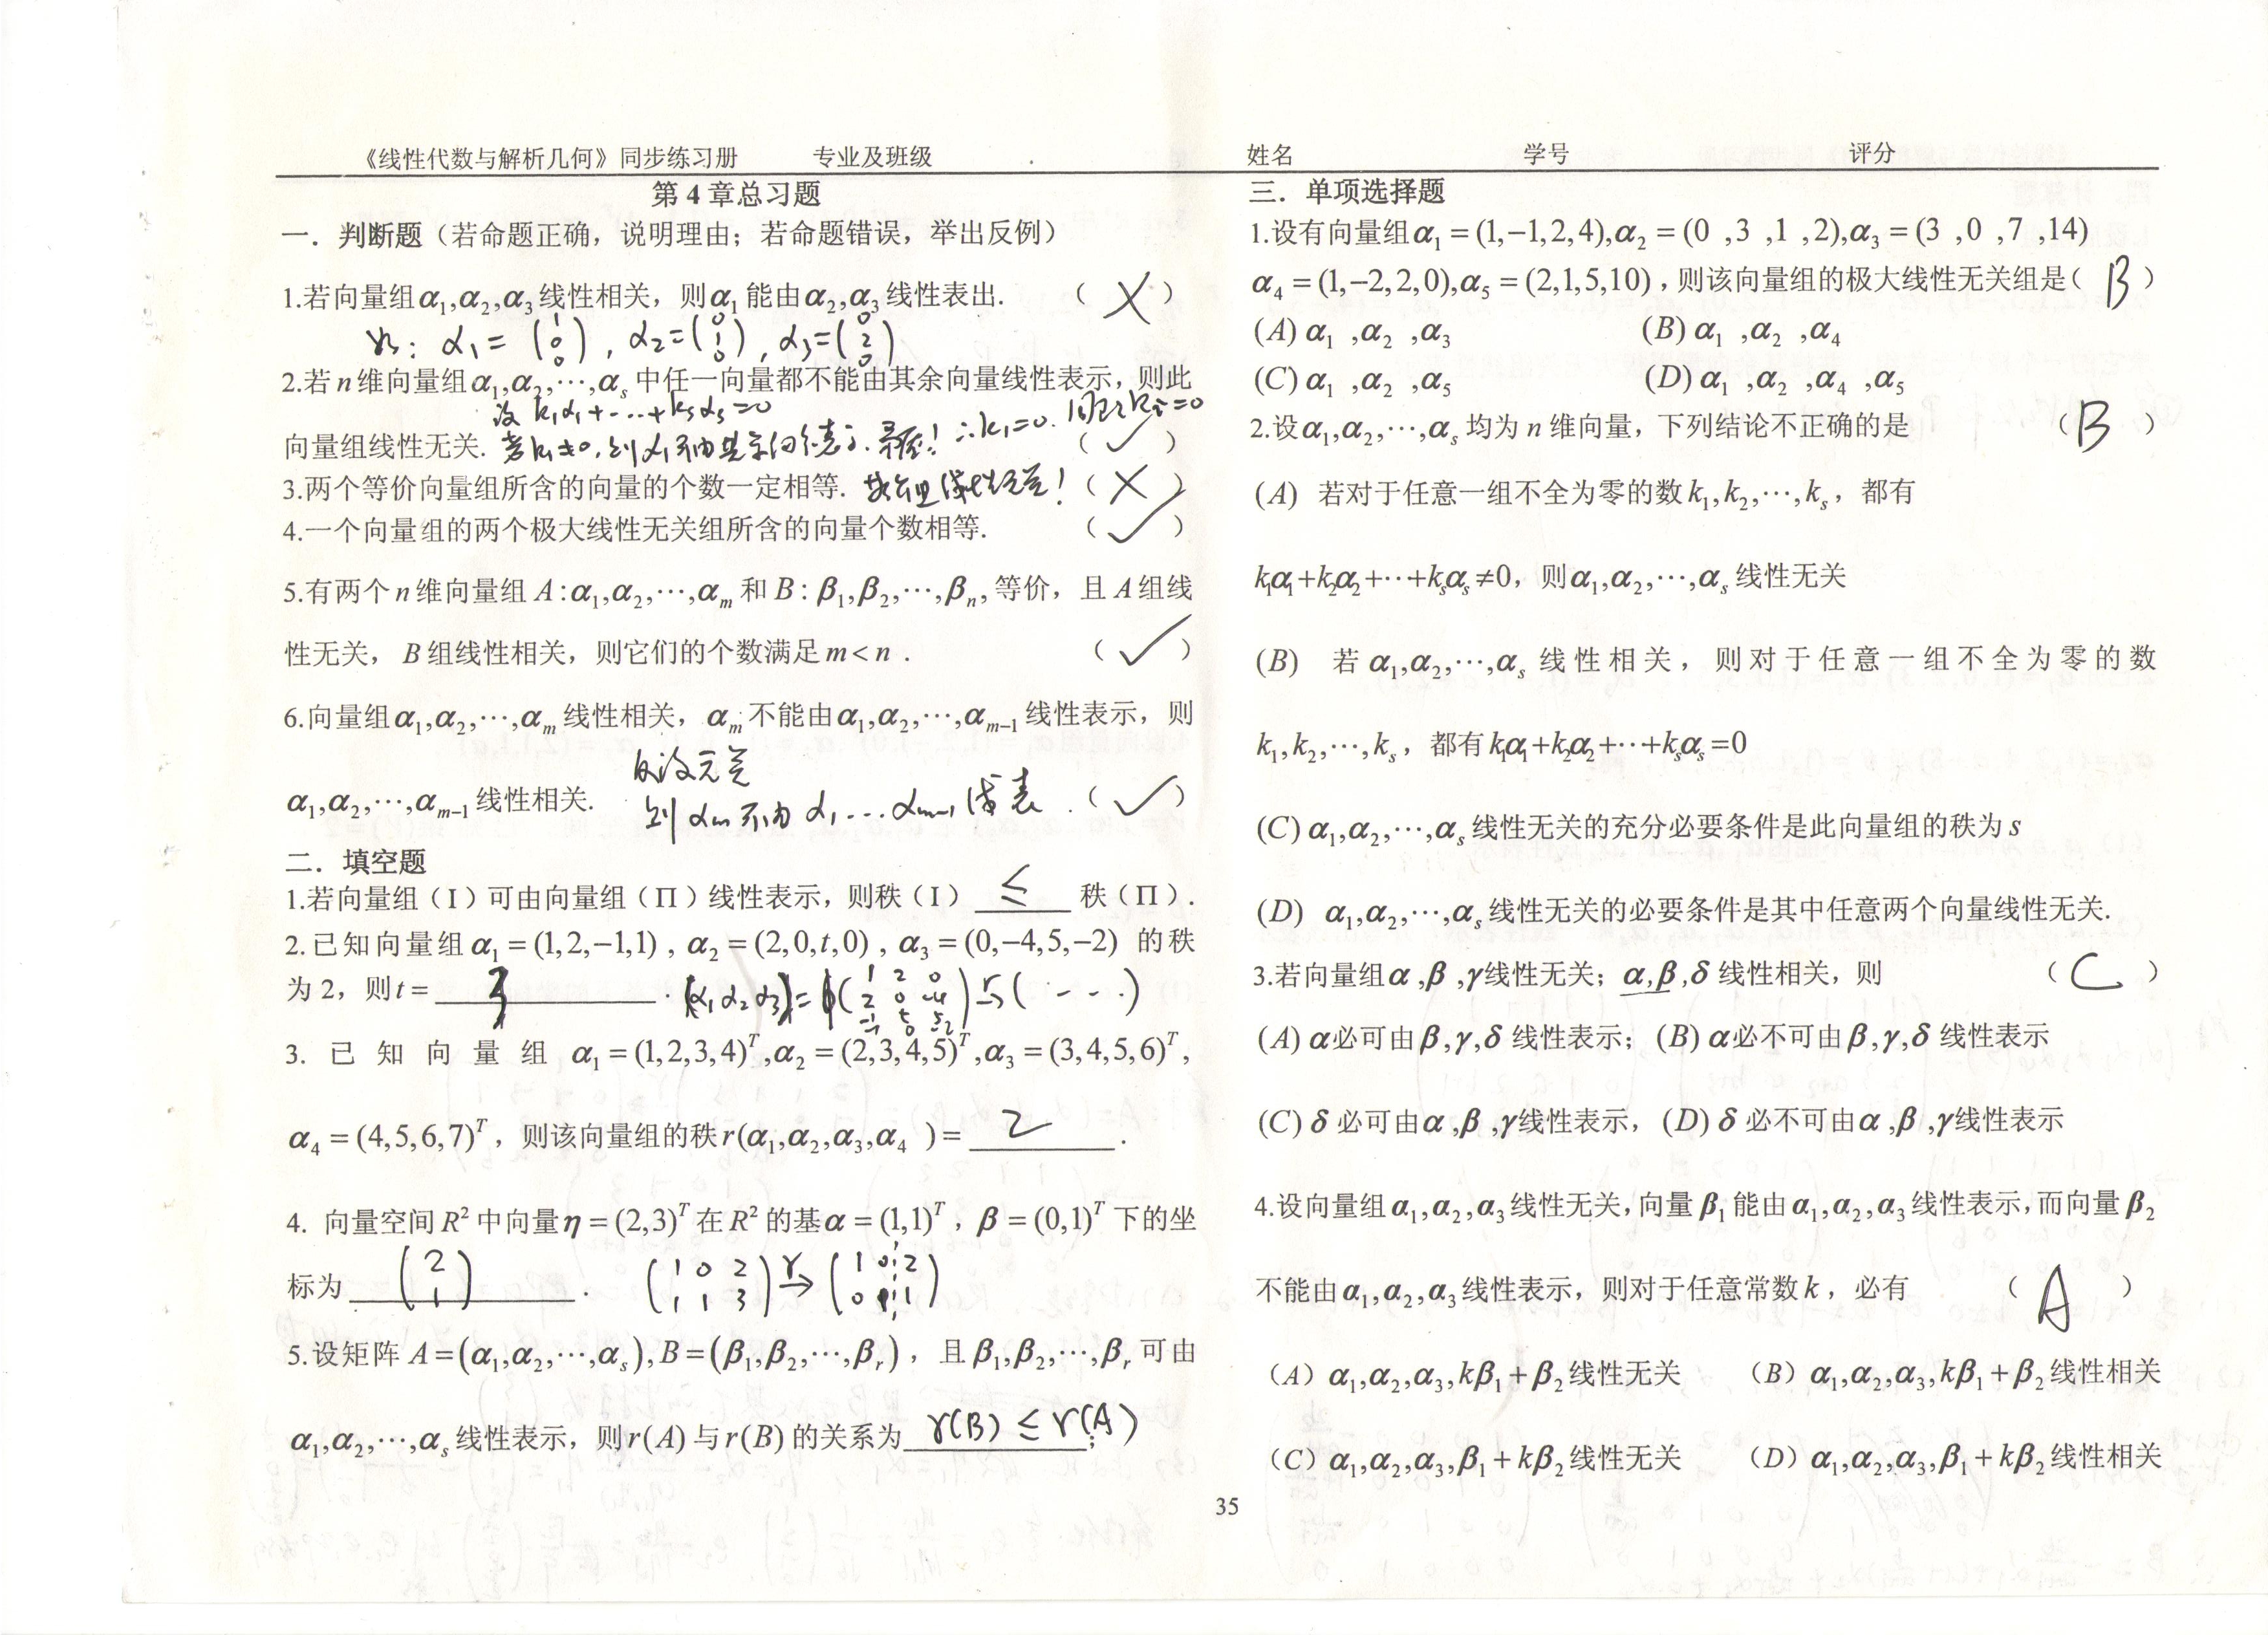 《线性代数与解析几何》同步练习册 专业及班级 姓名 学号 评分
第 4 章总习题
一．判断题（若命题正确，说明理由；若命题错误，举出反例）
1.若向量组α₁,α₂,α₃线性相关，则α₁能由α₂,α₃线性表出. （ × ）
如: α₁=(1 0 0), α₂=(0 1 0), α₃=(0 2 0)
2.若n维向量组α₁,α₂,⋯,αₛ中任一向量都不能由其余向量线性表示，则此
设 k₁α₁+⋯+kₛαₛ=0
向量组线性无关. 若k₁≠0,则α₁可由其余向线表示.矛盾! ∴k₁=0. 同理kᵢ=0 （ ✓ ）
3.两个等价向量组所含的向量的个数一定相等. （ × ）
4.一个向量组的两个极大线性无关组所含的向量个数相等. （ ✓ ）
5.有两个n维向量组A:α₁,α₂,⋯,αₘ和B:β₁,β₂,⋯,βₙ,等价，且A组线
性无关，B组线性相关，则它们的个数满足m<n . （ ✓ ）
6.向量组α₁,α₂,⋯,αₘ线性相关，αₘ不能由α₁,α₂,⋯,αₘ₋₁线性表示，则
反设无关
α₁,α₂,⋯,αₘ₋₁线性相关. 则αₘ可由α₁…αₘ₋₁线表 . （ ✓ ）
二．填空题
1.若向量组（I）可由向量组（Π）线性表示，则秩（I） ≤ 秩（Π）.
2.已知向量组α₁=(1,2,−1,1) , α₂=(2,0,t,0) , α₃=(0,−4,5,−2) 的秩
为 2，则t= 3 . (α₁α₂α₃)=(1 2 0 2 0 -4 -1 t 5 1 0 -2)→(---)
3. 已知向量组 α₁=(1,2,3,4)ᵀ,α₂=(2,3,4,5)ᵀ,α₃=(3,4,5,6)ᵀ,
α₄=(4,5,6,7)ᵀ，则该向量组的秩r(α₁,α₂,α₃,α₄ )= 2 .
4. 向量空间R²中向量η=(2,3)ᵀ在R²的基α=(1,1)ᵀ，β=(0,1)ᵀ下的坐
标为 (2 1) . (1 0 2 1 1 3) r→ (1 0 2 0 1 1)
5.设矩阵A=(α₁,α₂,⋯,αₛ),B=(β₁,β₂,⋯,βᵣ)，且β₁,β₂,⋯,βᵣ可由
α₁,α₂,⋯,αₛ线性表示，则r(A)与r(B)的关系为 r(B)≤r(A) ;
三．单项选择题
1.设有向量组α₁=(1,−1,2,4),α₂=(0 ,3 ,1 ,2),α₃=(3 ,0 ,7 ,14)
α₄=(1,−2,2,0),α₅=(2,1,5,10)，则该向量组的极大线性无关组是（ B ）
(A) α₁ ,α₂ ,α₃ (B) α₁ ,α₂ ,α₄
(C) α₁ ,α₂ ,α₅ (D) α₁ ,α₂ ,α₄ ,α₅
2.设α₁,α₂,⋯,αₛ均为n维向量，下列结论不正确的是 （ B ）
(A) 若对于任意一组不全为零的数k₁,k₂,⋯,kₛ，都有
k₁α₁+k₂α₂+⋯+kₛαₛ≠0，则α₁,α₂,⋯,αₛ线性无关
(B) 若α₁,α₂,⋯,αₛ线性相关，则对于任意一组不全为零的数
k₁,k₂,⋯,kₛ，都有k₁α₁+k₂α₂+⋯+kₛαₛ=0
(C) α₁,α₂,⋯,αₛ线性无关的充分必要条件是此向量组的秩为s
(D) α₁,α₂,⋯,αₛ线性无关的必要条件是其中任意两个向量线性无关.
3.若向量组α,β ,γ线性无关；α,β,δ线性相关，则 （ C ）
(A) α必可由β,γ,δ线性表示；(B) α必不可由β,γ,δ线性表示
(C) δ必可由α ,β ,γ线性表示，(D) δ必不可由α ,β ,γ线性表示
4.设向量组α₁,α₂,α₃线性无关,向量β₁能由α₁,α₂,α₃线性表示,而向量β₂
不能由α₁,α₂,α₃线性表示，则对于任意常数k，必有 （ A ）
（A）α₁,α₂,α₃,kβ₁+β₂线性无关 （B）α₁,α₂,α₃,kβ₁+β₂线性相关
（C）α₁,α₂,α₃,β₁+kβ₂线性无关 （D）α₁,α₂,α₃,β₁+kβ₂线性相关
35